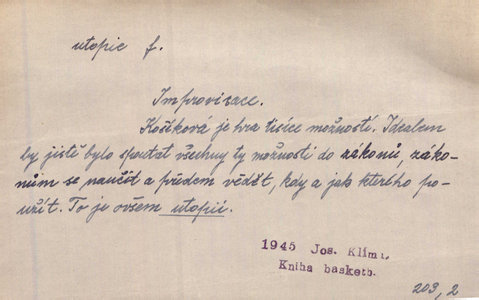 utopie f.
Improvisace.
Košíková je hra tisíce možností. Ideálem
by jistě bylo spoutat všechny ty možnosti do zákonů, záko-
nům se naučit a předem vědět, kdy a jak kterého po-
užít. To je ovšem utopií.
1945 Jos. Klíma,
Kniha basketb.
203, 2